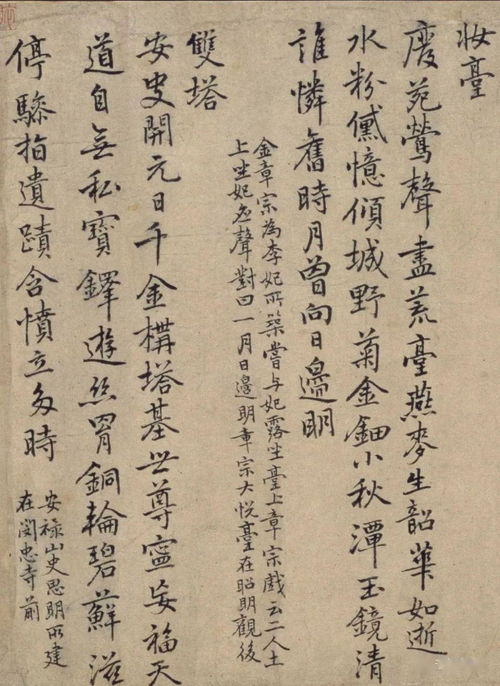 妝臺
廢苑鶯聲盡荒臺燕麥生韶華如逝
水粉黛憶傾城野菊金鈿小秋潭玉鏡清
誰憐舊時月曾向日邊明
金章宗為李妃所築嘗與妃露坐臺上章宗戲云二人土
上坐妃应聲對曰一月日邊明章宗大悅臺在昭明觀後
雙塔
安史開元日千金構塔基世尊寧妄福天
道自無私寶鐸遊丝罥銅輪碧蘚滋
停驂指遺蹟含憤立多時
安祿山史思明所建
在閔忠寺前